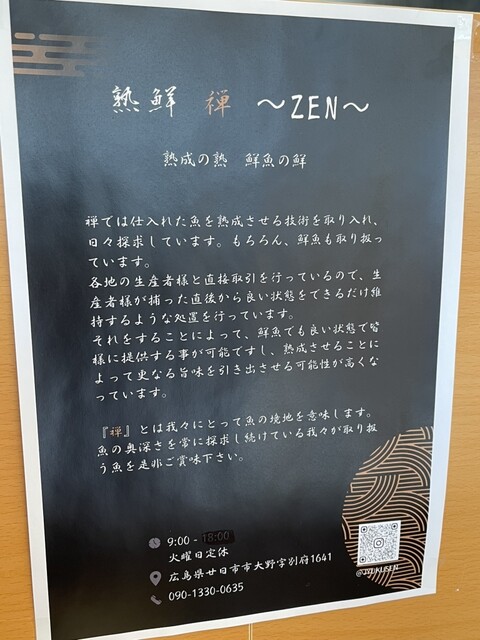 熟鮮 禅 〜ZEN〜
熟成の熟 鮮魚の鮮
禅では仕入れた魚を熟成させる技術を取り入れ、
日々探求しています。もろろん、鮮魚も取り扱っ
ています。
各地の生産者様と直接取引を行っているので、生
産者様が捕った直後から良い状態をできるだけ維
持するような処置を行っています。
それをすることによって、鮮魚でも良い状態で皆
様に提供する事が可能ですし、熟成させることに
よって更なる旨味を引き出させる可能性が高くな
っています。
『禅』とは我々にとって魚の境地を意味します。
魚の奥深さを常に探求し続けている我々が取り扱
う魚を是非ご賞味下さい。
9:00 - 18:00
火曜日定休
広島県廿日市市大野字別府1641
090-1330-0635
@JYUKUSEN